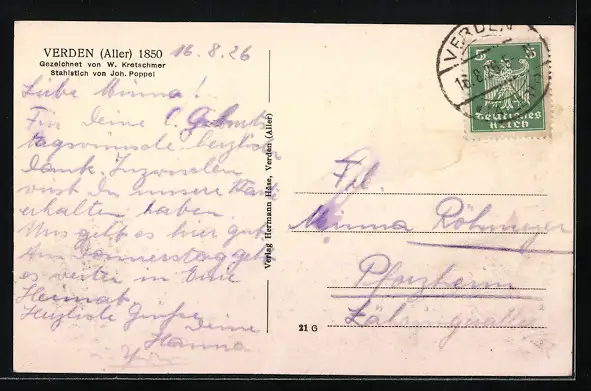 VERDEN (Aller) 1850
Gezeichnet von W. Kretschmer
Stahlstich von Joh. Poppel
16.8.26
Liebe Minna!
Für Deine l. Geburts
tagswünsche herzlichen
Dank. Inzwischen
wirst Du unsere Karte
erhalten haben.
Uns geht es hier gut.
Am Donnerstag geht
es weiter in Eine
Heimat.
Herzliche Grüsse
Deine
Hanna
Verlag Hermann Häse, Verden (Aller)
VERDEN
5 5
Deutsches
Reich
Frl.
Minna Röhmeyer
Pforzheim
21 G